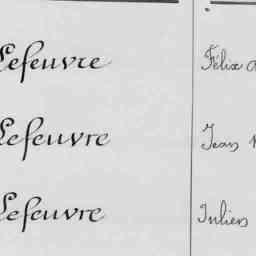 Lefeuvre Félix
Lefeuvre Jean
Lefeuvre Julien